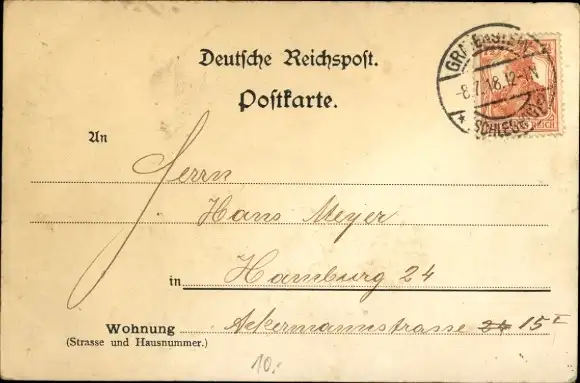 Deutsche Reichspost.
Postkarte.
-8.7.18.12-1N
An
Herrn
Hans Meyer
in Hamburg 24
Wohnung Ackermannstrasse 24 15 I
(Strasse und Hausnummer.)
10.-